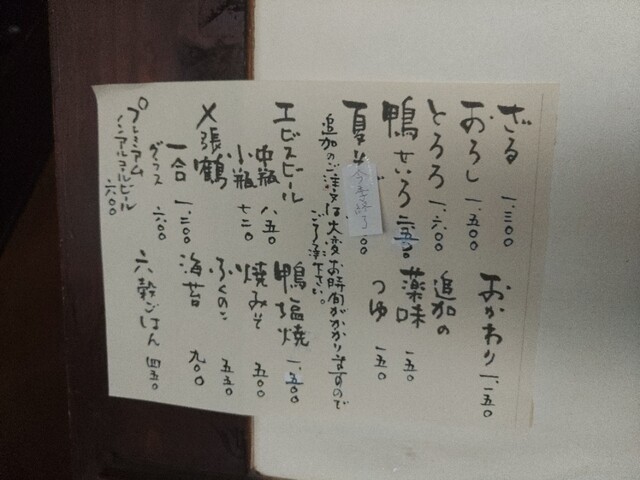 ざる 一.三〇〇
おろし 一.五〇〇
とろろ 一.六〇〇
鴨せいろ
夏
今季終了
おかわり
追加の
薬味 一五〇
つゆ 一五〇
追加のご注文は大変お時間がかかりますので
ご了承下さい。
エビスビール
中瓶 八五〇
小瓶 七二〇
〆張鶴
一合 一.二〇〇
グラス 六〇〇
プレミアム
ノンアルコールビール
六〇〇
鴨塩焼 一.五〇〇
焼みそ 五〇〇
ふくのこ 五五〇
海苔 九〇〇
六穀ごはん 四五〇